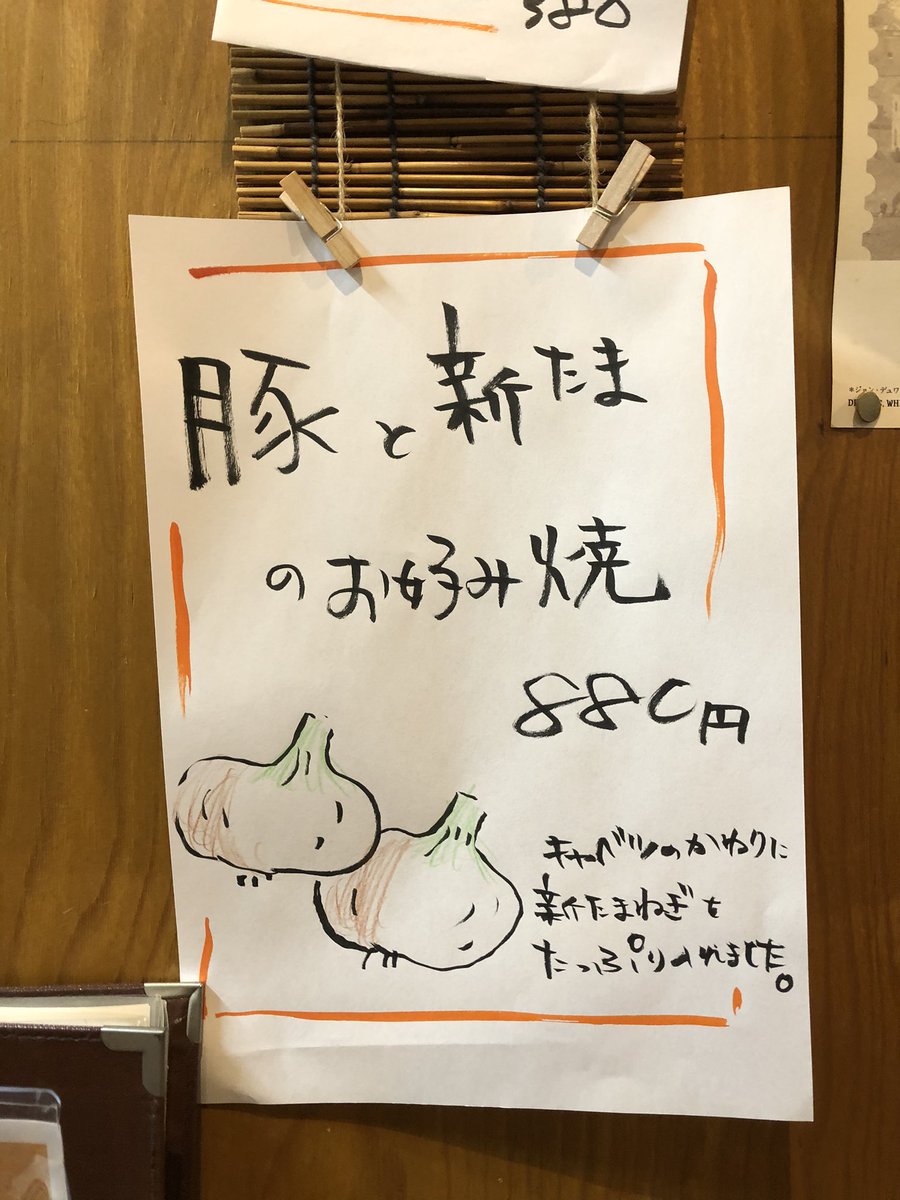 580
豚と新たま
のお好み焼
880円
キャベツのかわりに
新たまねぎを
たっぷり入れました。
*ジョン・デュワ